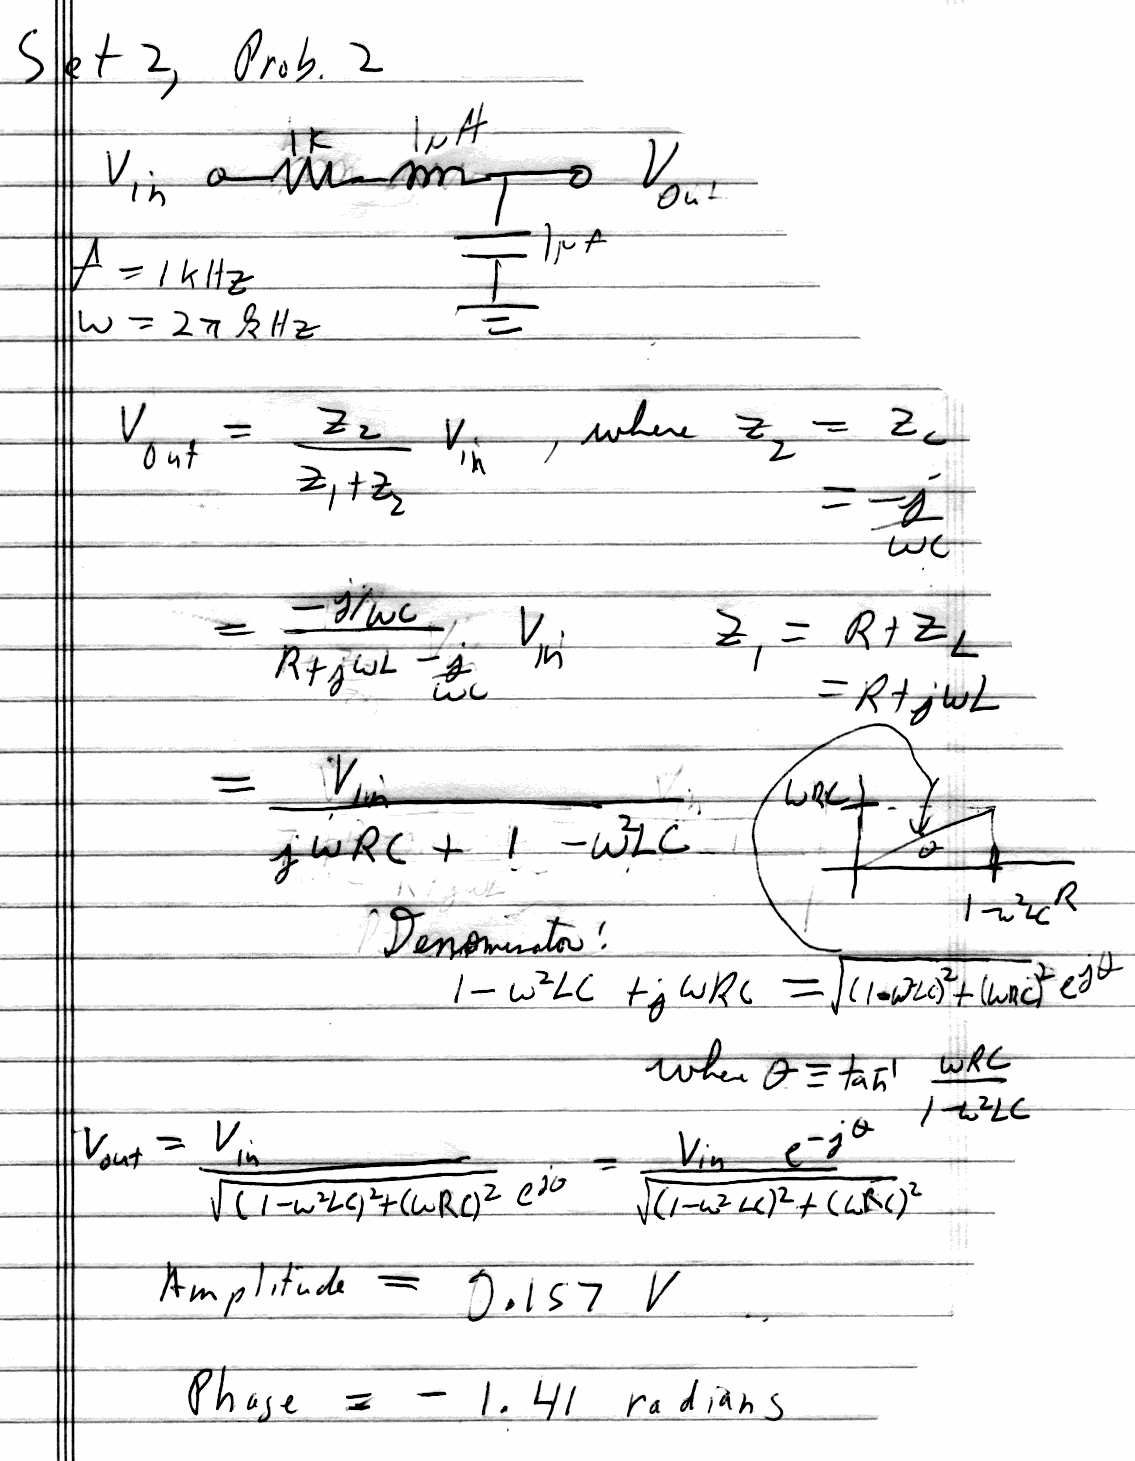 Set 2, Prob. 2
1K 1μH
Vin Vout
1μF
f = 1 kHz
ω = 2π kHz
Vout = Z2 / (Z1 + Z2) Vin , where Z2 = Zc
= -j / ωC
= (-j/ωC) / (R + jωL - j/ωC) Vin Z1 = R + ZL
= R + jωL
= Vin / (jωRC + 1 - ω²LC)
ωRC
θ
1-ω²LC R
Denominator:
1 - ω²LC + jωRC = √((1-ω²LC)² + (ωRC)²) e^jθ
where θ ≡ tan⁻¹ ωRC / (1-ω²LC)
Vout = Vin / (√((1-ω²LC)²+(ωRC)²) e^jθ) = Vin e^-jθ / √((1-ω²LC)² + (ωRC)²)
Amplitude = 0.157 V
Phase = - 1.41 radians